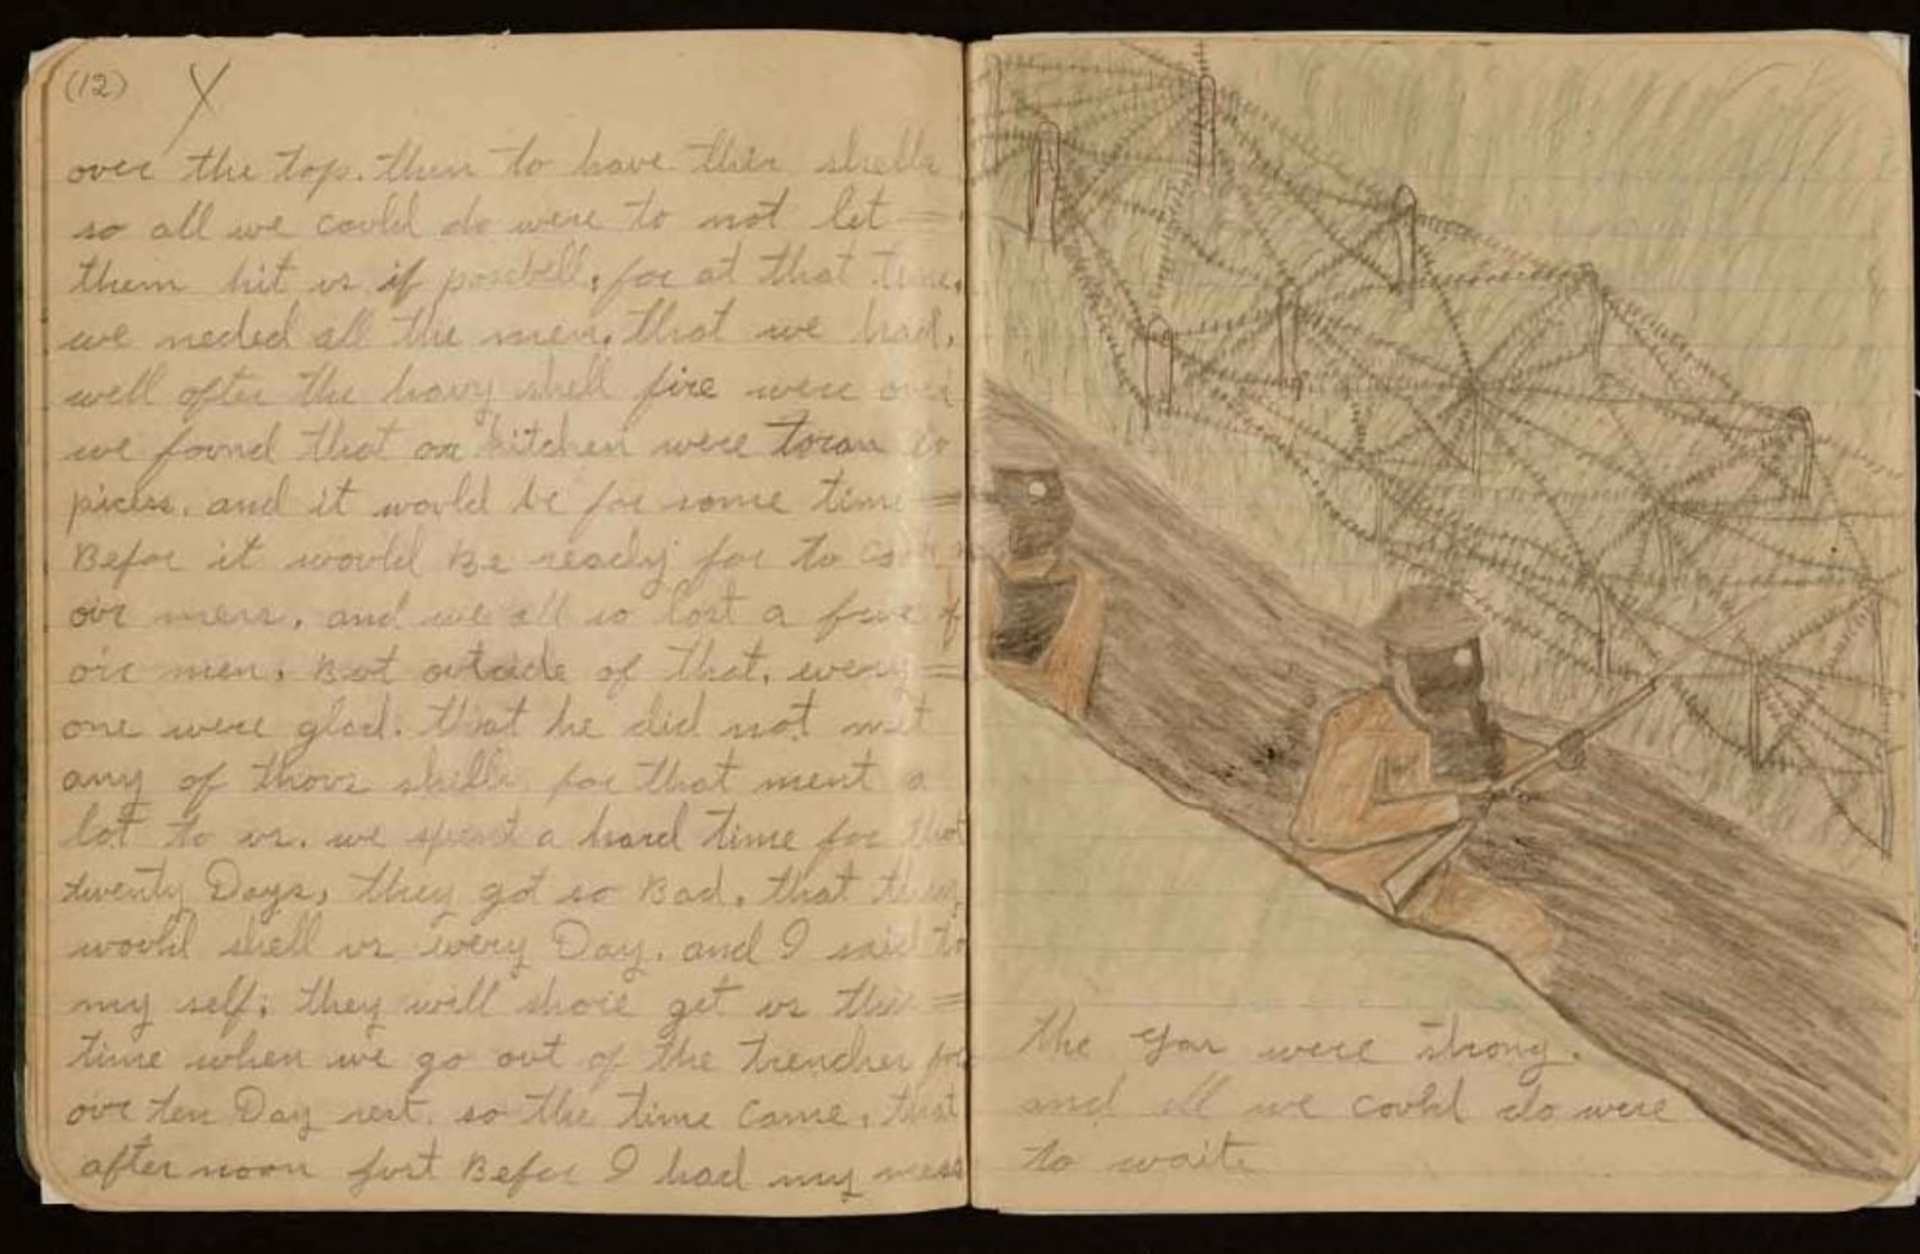 (12) X
over the top. then to have thier shells
so all we could do were to not let =
them hit us if posebell, for at that time,
we neded all the men, that we had,
well after the heavy shell fire were over
we found that our kitchen were toran to
picess. and it would be for some time =
Befor it would Be ready for to
our mess, and we all so lost a few of
our men. But outside of that, every =
one were glad. that he did not met
any of thous shells, for that ment a
lot to us. we spent a hard time for that
twenty Days, they got so Bad, that they
would shell us every Day. and I said to
my self; they will shore get us this =
time when we go out of the trenches for
our ten Day rest. so the time came, that
after noon just Befor I had my mess
the gas were strong.
and all we could do were
to wait